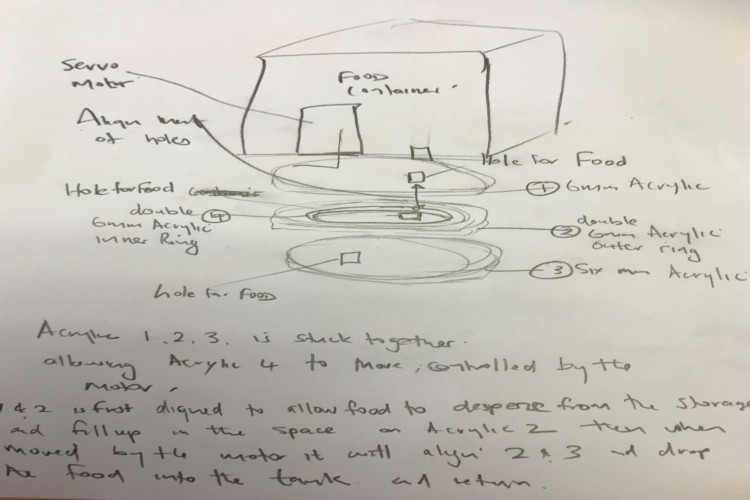 Servo
Motor
Food
Container.
Alignment
of holes
Hole for Food
① 6mm Acrylic
Hole for Food
double ④
6mm Acrylic
inner Ring
② double
6mm Acrylic
outer ring
③ Six mm Acrylic
hole for Food
Acrylic 1, 2, 3. is stuck together.
allowing Acrylic 4 to move, controlled by the
motor.
1 & 2 is first aligned to allow food to despense from the storage
and fill up in the space on Acrylic 2 then when
moved by the motor it will align 2 & 3 and drop
the food into the tank. and return.